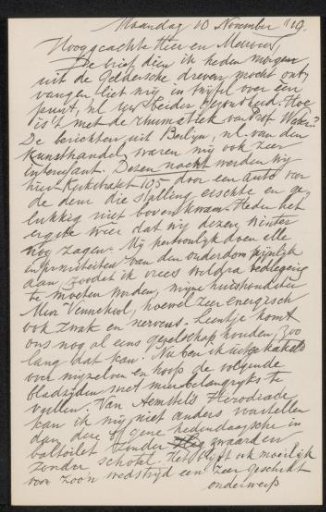 Maandag 10 November '19.
Hooggeachte Heer en Mevrouw
De brief dien ik heden morgen
uit de Geldersche dreven mocht ont,
vangen liet mij in twijfel over een
punt, nl. uw beider gezondheid. Hoe
is 't met de rheumatiek van Prof.
De berichten uit Berlijn, nl. van den
Kunsthandel waren mij ook zeer
interessant. Dezen nacht werden wij
hier door een auto voor
de deur die stalling eischte en ge,
lukkig niet bovenkwam. Heden het
ergste weer dat wij dezen winter
nog zagen. Mij persoonlijk doen alle
van den ouderdom pijnlijk
aan, zoodat ik vrees weldra
te moeten worden, mijne huishoudster
Mevr. hoewel zeer energisch
ook zwak en nerveus. Leentje komt
ons nog al eens gezelschap houden, zoo
lang dat kan. Nu ben ik
over mijzelven en hoop de volgende
bladzijden met min belangrijks te
vullen. Van Herodiade
kan ik mij niet anders voorstellen
dan deze of gene hedendaagsche in
baltoilet zonder zwaard en
zonder schotel. Het lijkt ook moeilijk
voor zoon wedstrijd een zeer geschikt
onderwerp